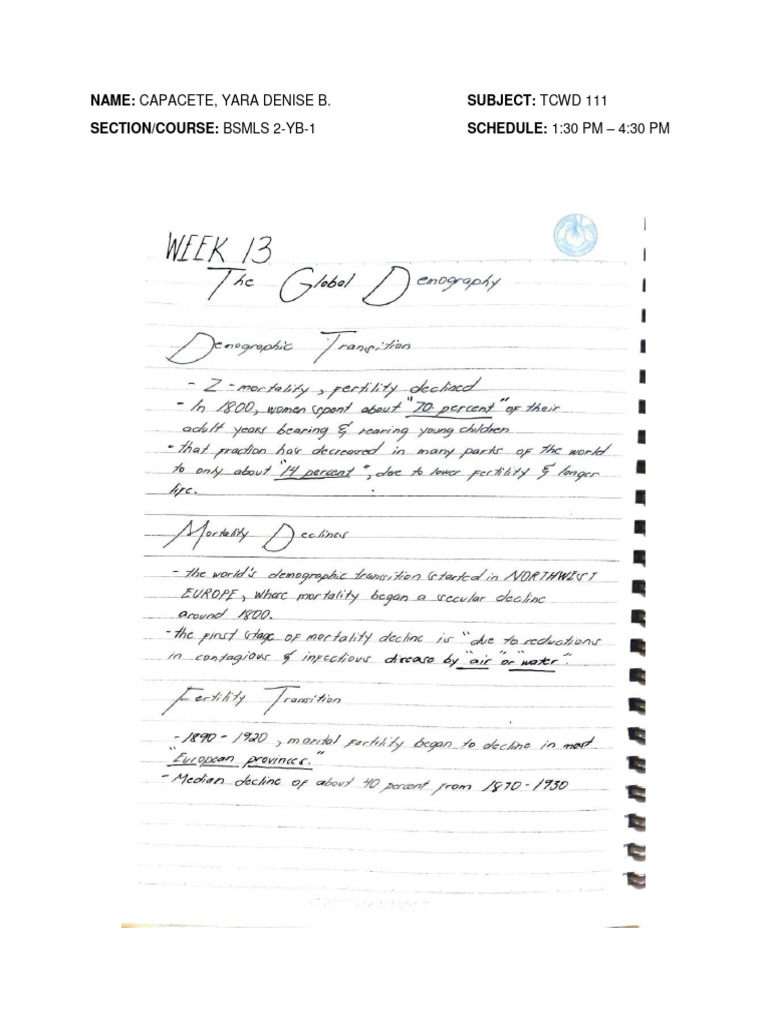 NAME: CAPACETE, YARA DENISE B.
SUBJECT: TCWD 111
SECTION/COURSE: BSMLS 2-YB-1
SCHEDULE: 1:30 PM – 4:30 PM
WEEK 13
The Global Demography
Demographic Transition
- 2 - mortality, fertility declined
- In 1800, women spent about "70 percent" of their
adult years bearing & rearing young children
- that fraction has decreased in many parts of the world
to only about "14 percent", due to lower fertility & longer
life.
Mortality Declines
- the world's demographic transition started in NORTHWEST
EUROPE, where mortality began a secular decline
around 1800.
- the first stage of mortality decline is "due to reductions
in contagious & infectious disease by "air" or "water".
Fertility Transition
- 1890 - 1920, marital fertility began to decline in most
"European provinces."
- Median decline of about 40 percent from 1870 - 1930